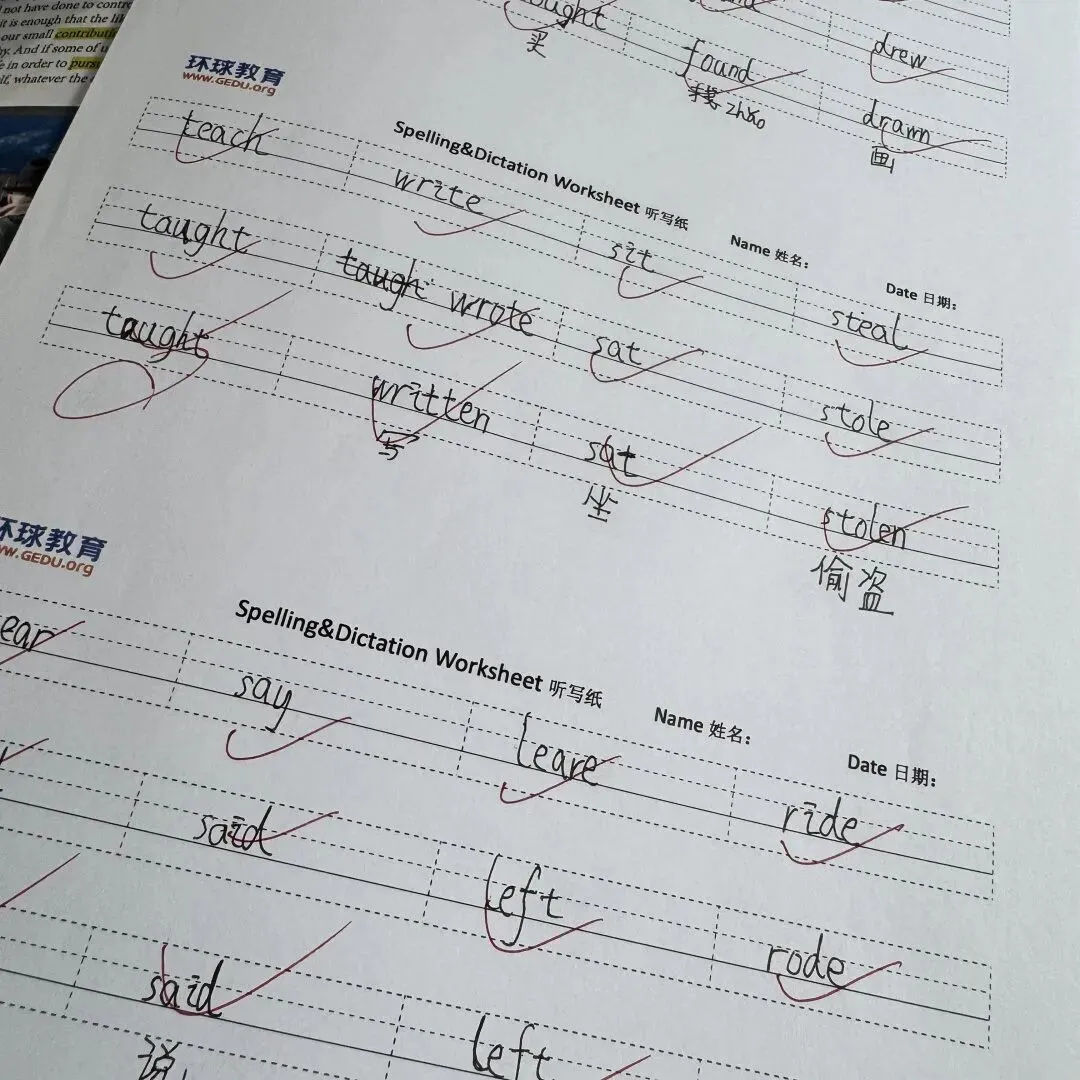 not have done to contro
it is enough that the lik
our small contributi
by. And if some of u
e in order to pursu
lf, whatever the
ought
买
found
找 zhǎo
drew
drawn
画
环球教育
www.GEDU.org
Spelling&Dictation Worksheet 听写纸
Name 姓名：
Date 日期：
teach
write
sit
steal
taught
taugh wrote
sat
stole
taught
written
写
sat
坐
stolen
偷盗
环球教育
ww.GEDU.org
Spelling&Dictation Worksheet 听写纸
Name 姓名：
Date 日期：
ear
say
leare
ride
said
left
rode
said
说
left